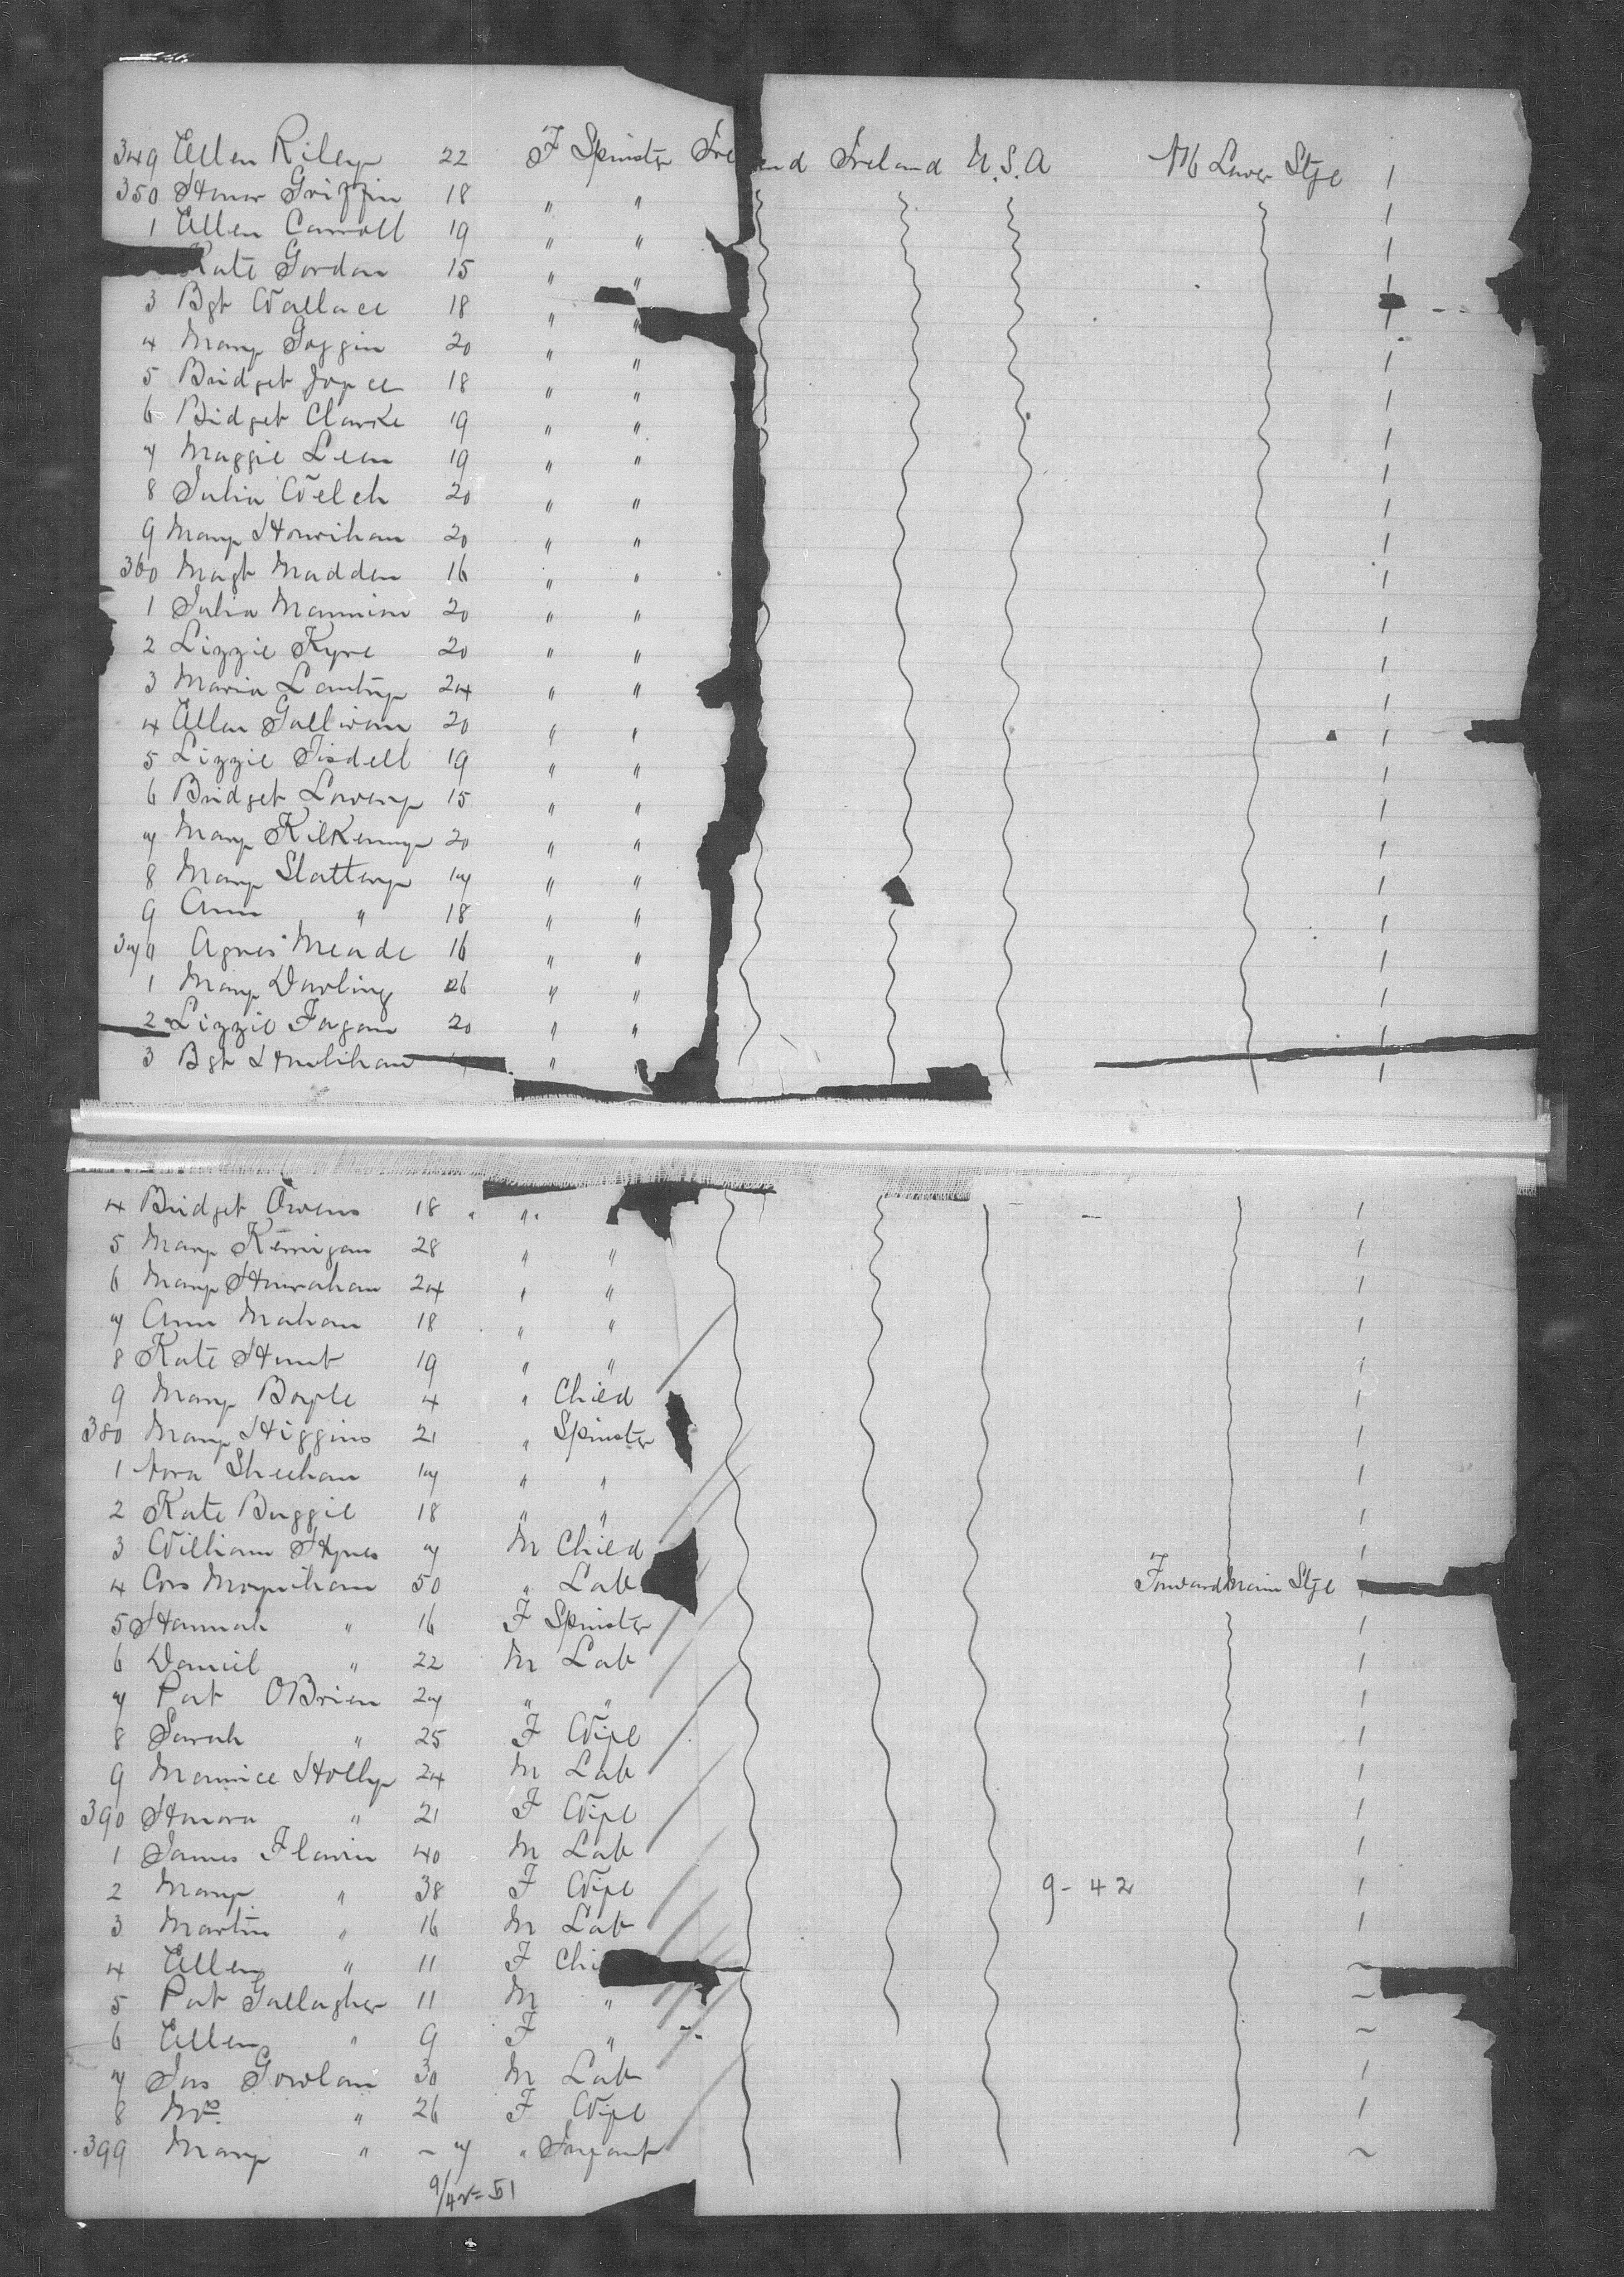 349 Ellen Riley 22 F Spinster Ire nd Ireland U.S.A M Lower Stge 1
350 Honor Griffin 18 " " 1
1 Ellen Carroll 19 " " 1
Kate Gordon 15 " " 1
3 Bgt Wallace 18 " " 1
4 Mary Goggin 20 " " 1
5 Bridget Joyce 18 " " 1
6 Bridget Clarke 19 " " 1
7 Maggie Leen 19 " " 1
8 Julia Welch 20 " " 1
9 Mary Hourihan 20 " " 1
360 Magt Madden 16 " " 1
1 Julia Mannion 20 " " 1
2 Lizzie Kyre 20 " " 1
3 Maria 24 " " 1
4 Ellen Gallivan 20 " " 1
5 Lizzie Tisdell 19 " " 1
6 Bridget Lowery 15 " " 1
7 Mary Kilkenny 20 " " 1
8 Mary Slattery 17 " " 1
9 Ann " 18 " " 1
370 Agnes Meade 16 " " 1
1 Mary Dowling 26 " " 1
2 Lizzie Fagan 20 " " 1
3 Bgt Houlihan " " 1
4 Bridget Owens 18 " " 1
5 Mary Kerrigan 28 " " 1
6 Mary Hanrahan 24 " " 1
7 Ann Mahan 18 " " 1
8 Kate Hunt 19 " " 1
9 Mary Boyle 4 " Child 1
380 Mary Higgins 21 " Spinster 1
1 Nora Sheehan 17 " " 1
2 Kate Buggie 18 " " 1
3 William Hynes 7 M Child 1
4 Cors Moynihan 50 " Lab Forward Main Stge
5 Hannah " 16 F Spinster 1
6 Daniel " 22 M Lab 1
7 Pat OBrien 27 " " 1
8 Sarah " 25 F Wife 1
9 Maurice Holly 24 M Lab 1
390 Honora " 21 F Wife 1
1 James Flavin 40 M Lab 1
2 Mary " 38 F Wife 9-42 1
3 Martin " 16 M Lab 1
4 Ellen " 11 F Chi ~
5 Pat Gallagher 11 M " ~
6 Ellen " 9 F " ~
7 Jas Gowlan 30 M Lab 1
8 Mrs " 26 F Wife 1
399 Mary " - 7 " Infant ~
9/42=51